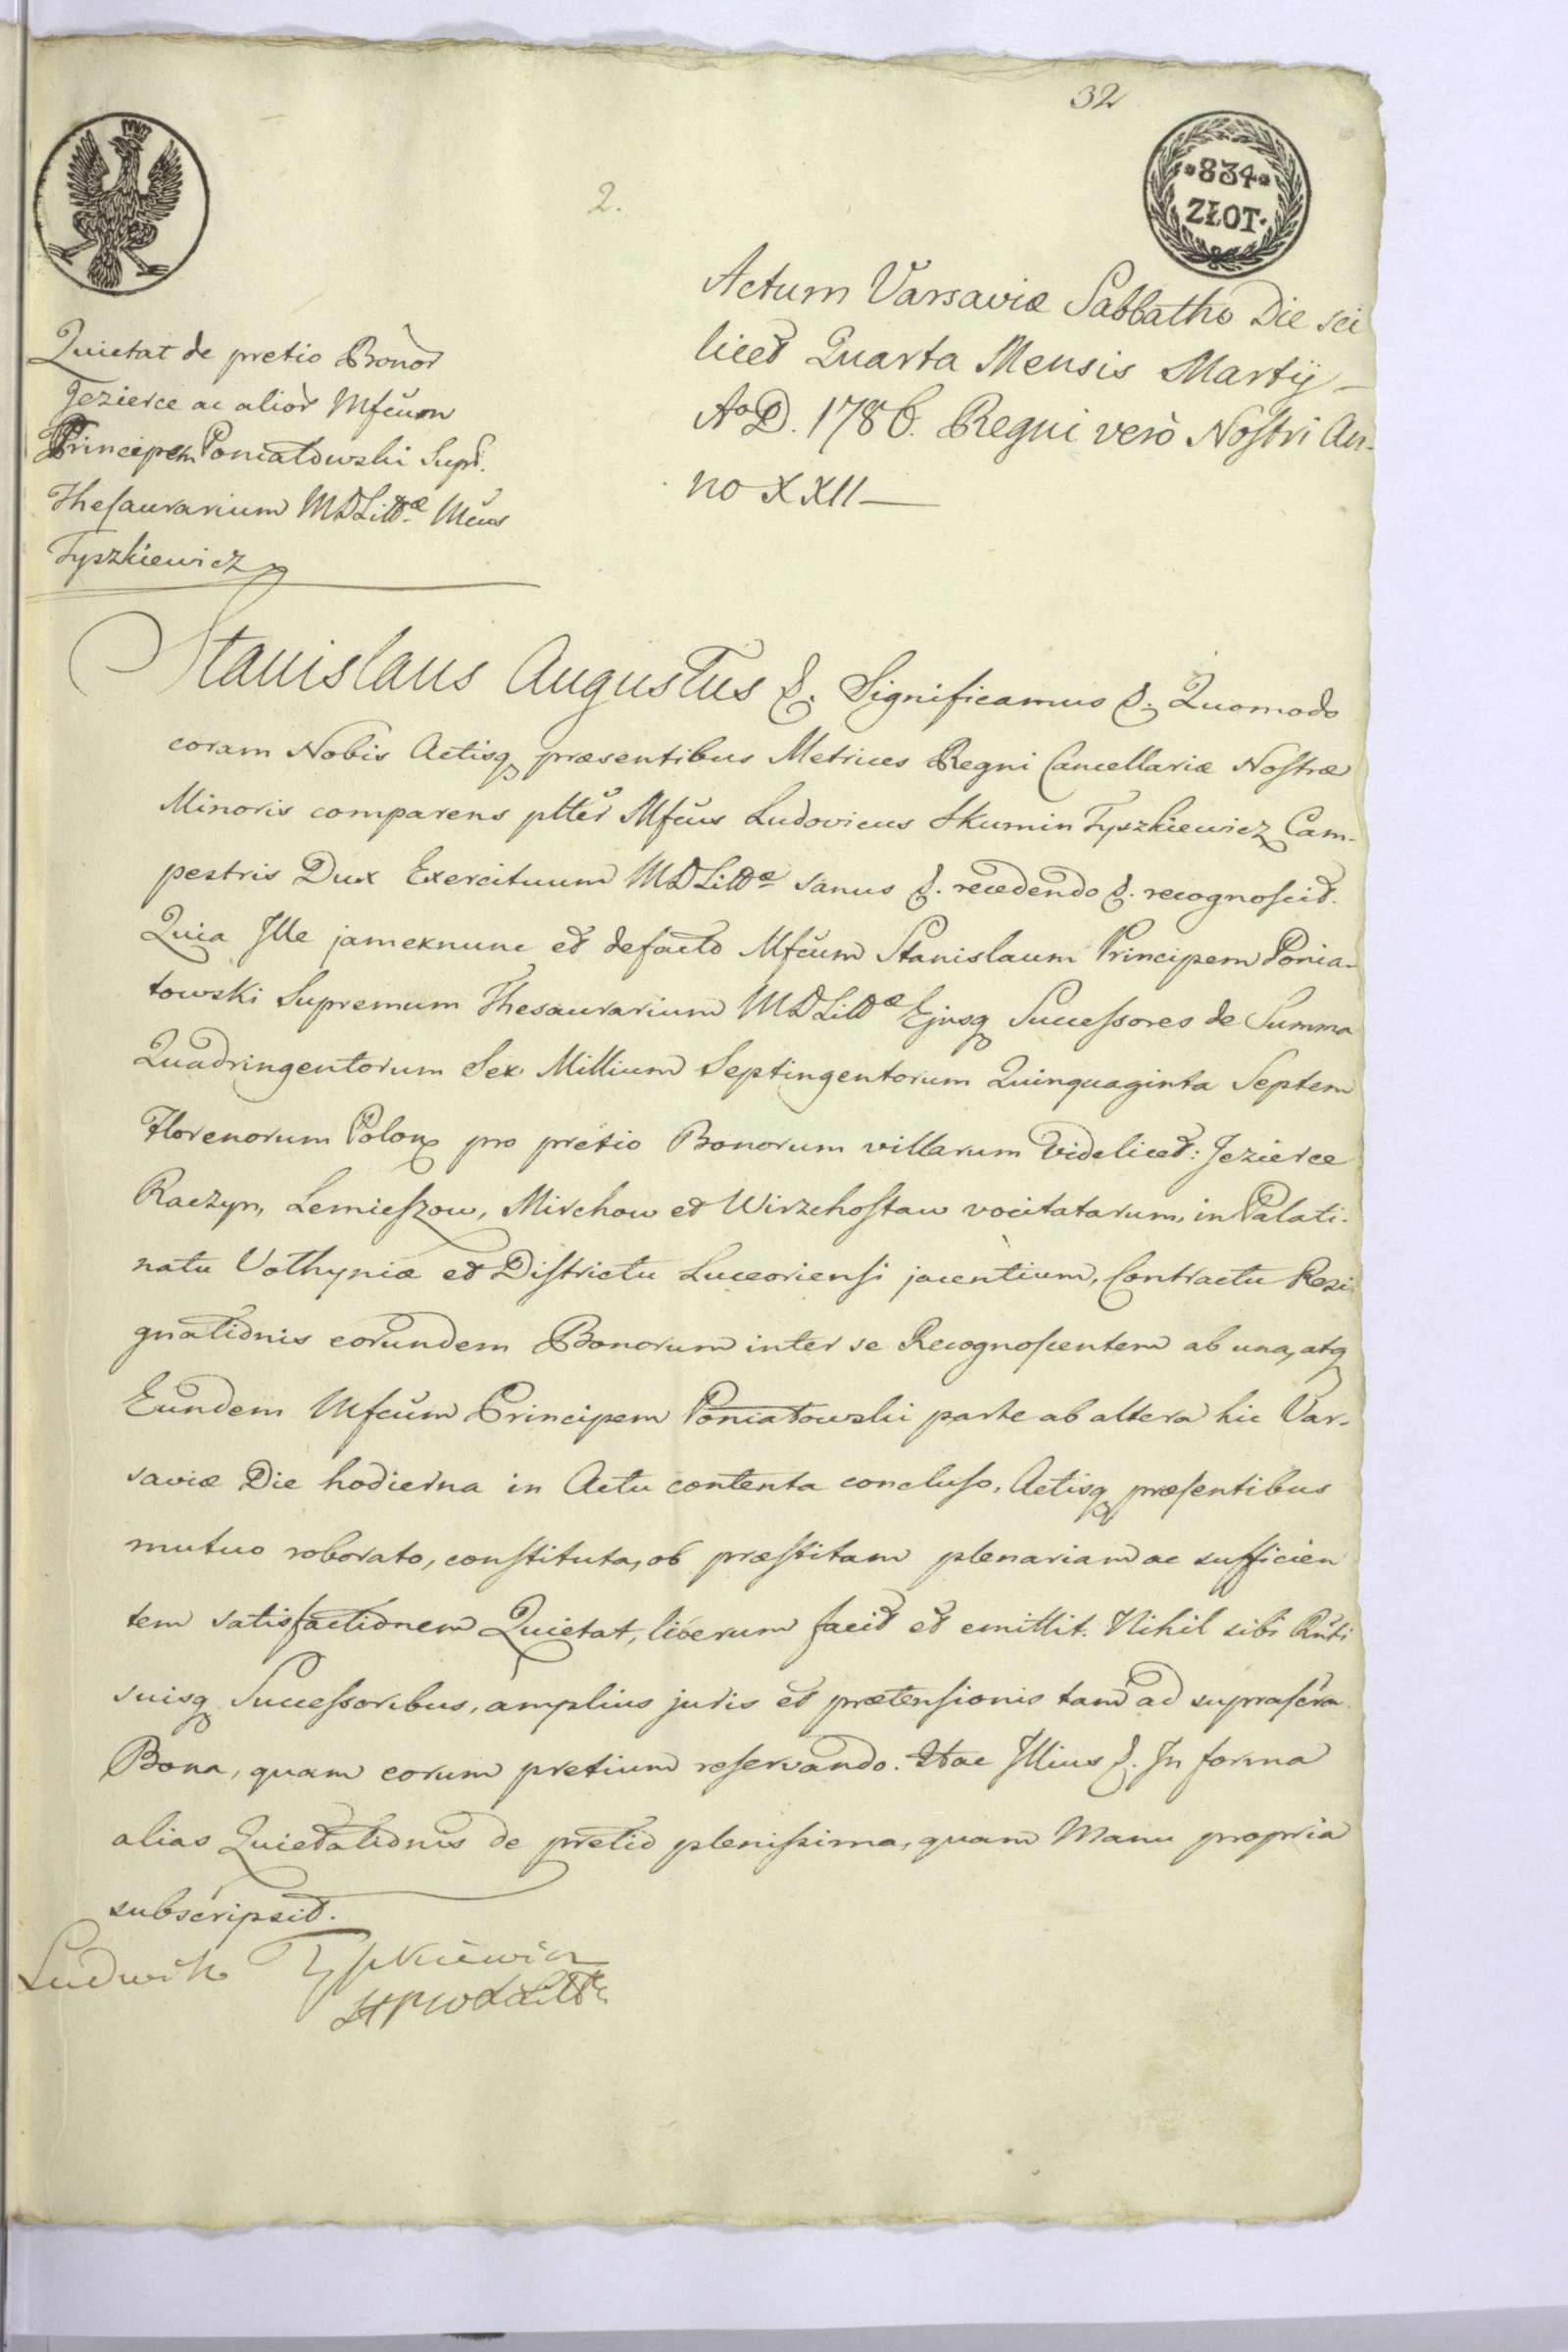 32
2.
*834*
ZŁOT.
Actum Varsaviæ Sabbatho Die sci
licet Quarta Mensis Martij
AoD. 1786. Regni verò Nostri An-
no XXII
Quietat de pretio Bonor
Jezierce ac alior Mfcum
Principem Poniatowski Supr.
Thesaurarium MDLittæ Mcus
Tyszkiewicz
Stanislaus Augustus &. Significamus &. Quomodo
coram Nobis Actisq præsentibus Metrices Regni Cancellariæ Nostræ
Minoris comparens plter Mfcus Ludovicus Skumin Tyszkiewicz Cam-
pestris Dux Exercituum MDLittæ sanus &. recedendo &. recognoscit.
Quia Ille jamexnunc et defacto Mfcum Stanislaum Principem Ponia-
towski Supremum Thesaurarium MDLittæ Ejusq Successores de Summa
Quadringentorum Sex Millium Septingentorum Quinquaginta Septem
Florenorum Polon pro pretio Bonorum villarum videlicet: Jezierce
Raczyn, Lemieszow, Mirchow et Wirzchostaw vocitatarum, in Palati-
natu Volhyniæ et Districtu Luceoriensi jacentium, Contractu Resi
gnationis eorundem Bonorum inter se Recognoscentem ab una, atq
Eundem Mfcum Principem Poniatowski parte ab altera hic Var-
saviæ Die hodierna in Actu contenta concluso, Actisq præsentibus
mutuo roborato, constituta, ob præstitam plenariam ac sufficien
tem satisfactionem Quietat, liberum facit et emittit. Nihil sibi Rnti
suisq Successoribus, amplius juris et prætensionis tam ad suprascra
Bona, quam eorum pretium reservando. Hac Illius &. In forma
alias Quietationis de pretio plenissima, quam Manu propria
subscripsit.
Ludwik Tyszkiewicz